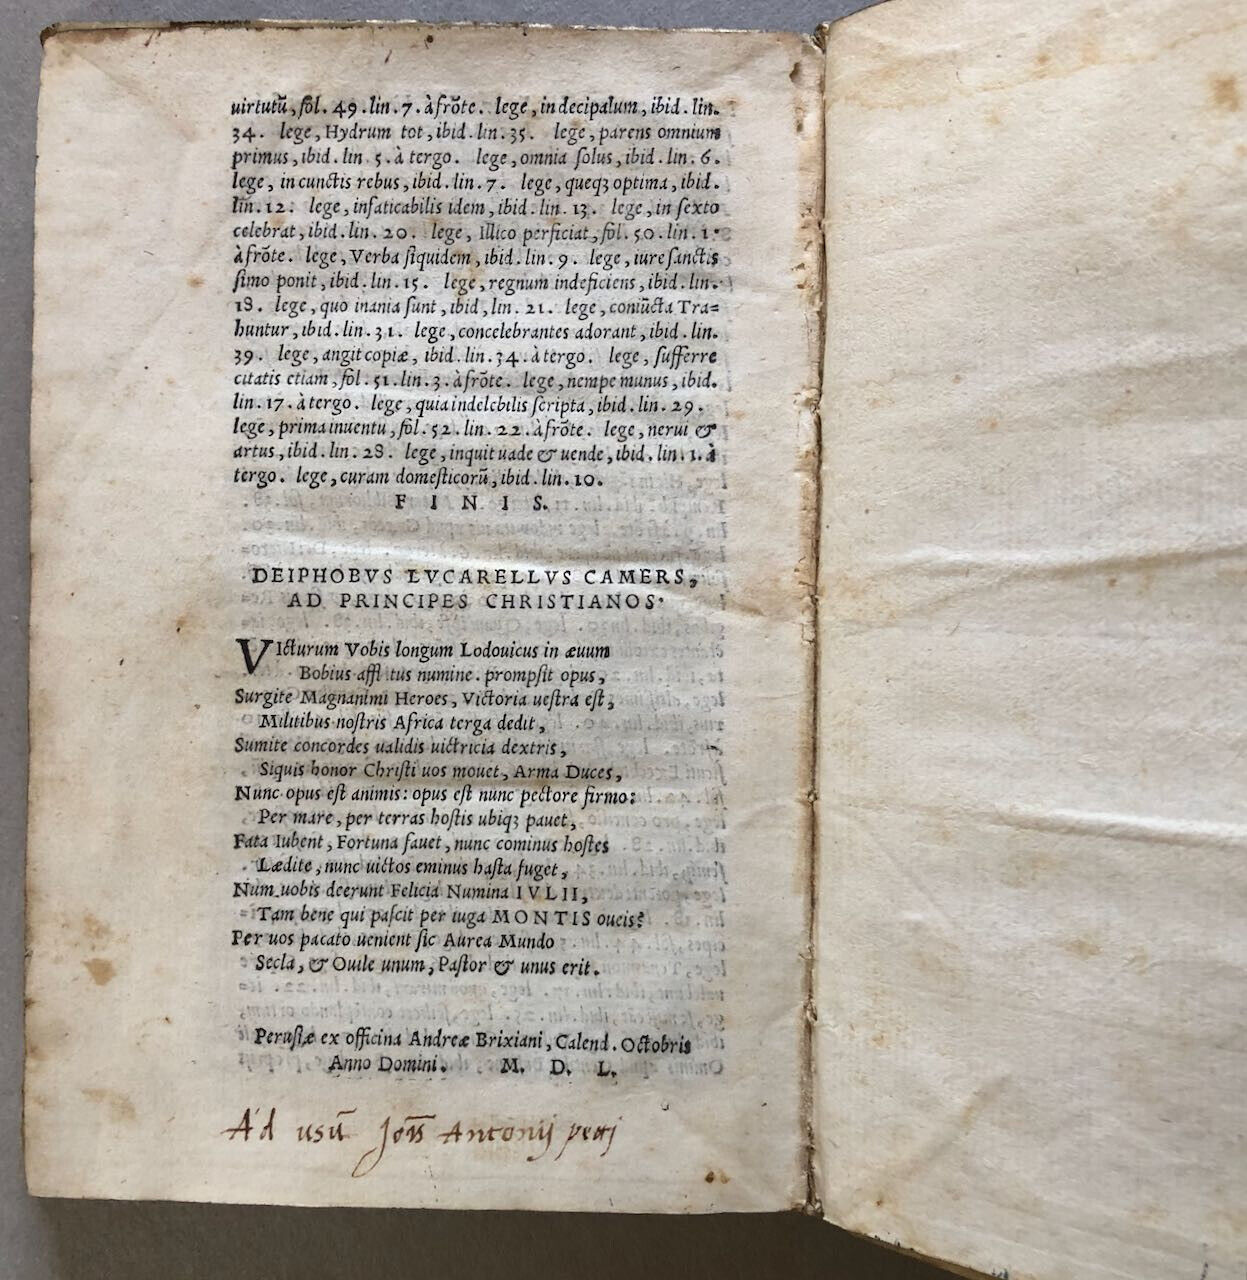 uirtutũ, fol. 49. lin. 7. à frõte. lege, in decipalum, ibid. lin.
34. lege, Hydrum tot, ibid. lin. 35. lege, parens omnium
primus, ibid. lin. 5. à tergo. lege, omnia solus, ibid. lin. 6.
lege, in cunctis rebus, ibid. lin. 7. lege, queqꝫ optima, ibid.
lin. 12. lege, insaticabilis idem, ibid. lin. 13. lege, in sexto
celebrat, ibid. lin. 20. lege, Illico perficiat, fol. 50. lin. 1.
à frõte. lege, Verba siquidem, ibid. lin. 9. lege, iure sanctis
simo ponit, ibid. lin. 15. lege, regnum indeficiens, ibid. lin.
18. lege, quo inania sunt, ibid, lin. 21. lege, coniũcta Tra=
huntur, ibid. lin. 31. lege, concelebrantes adorant, ibid. lin.
39. lege, angit copiæ, ibid. lin. 34. à tergo. lege, sufferre
citatis etiam, fol. 51. lin. 3. à frõte. lege, nempe munus, ibid.
lin. 17. à tergo. lege, quia indelebilis scripta, ibid. lin. 29.
lege, prima inuentu, fol. 52. lin. 22. à frõte. lege, nerui &
artus, ibid. lin. 28. lege, inquit uade & uende, ibid. lin. 1. à
tergo. lege, curam domesticorũ, ibid. lin. 10.
F I N I S.
DEIPHOBVS LVCARELLVS CAMERS,
AD PRINCIPES CHRISTIANOS.
VIcturum Vobis longum Lodouicus in æuum
Bobius affl tus numine. prompsit opus,
Surgite Magnanimi Heroes, Victoria uestra est,
Militibus nostris Africa terga dedit,
Sumite concordes ualidis uictricia dextris,
Siquis honor Christi uos mouet, Arma Duces,
Nunc opus est animis: opus est nunc pectore firmo:
Per mare, per terras hostis ubiqꝫ pauet,
Fata Iubent, Fortuna fauet, nunc cominus hostes
Lædite, nunc uictos eminus hasta fuget,
Num uobis deerunt Felicia Numina IVLII,
Tam bene qui pascit per iuga MONTIS oueis?
Per uos pacato uenient sic Aurea Mundo
Secla, & Ouile unum, Pastor & unus erit.
Perusiæ ex officina Andreæ Brixiani, Calend. Octobris
Anno Domini. M. D. L.
Ad usũ Joñis Antonij petij